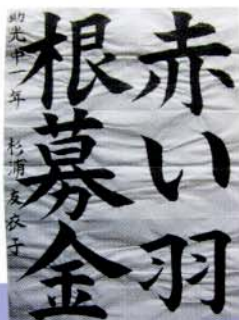 赤い羽
根募金
助光中一年 杉浦友衣子